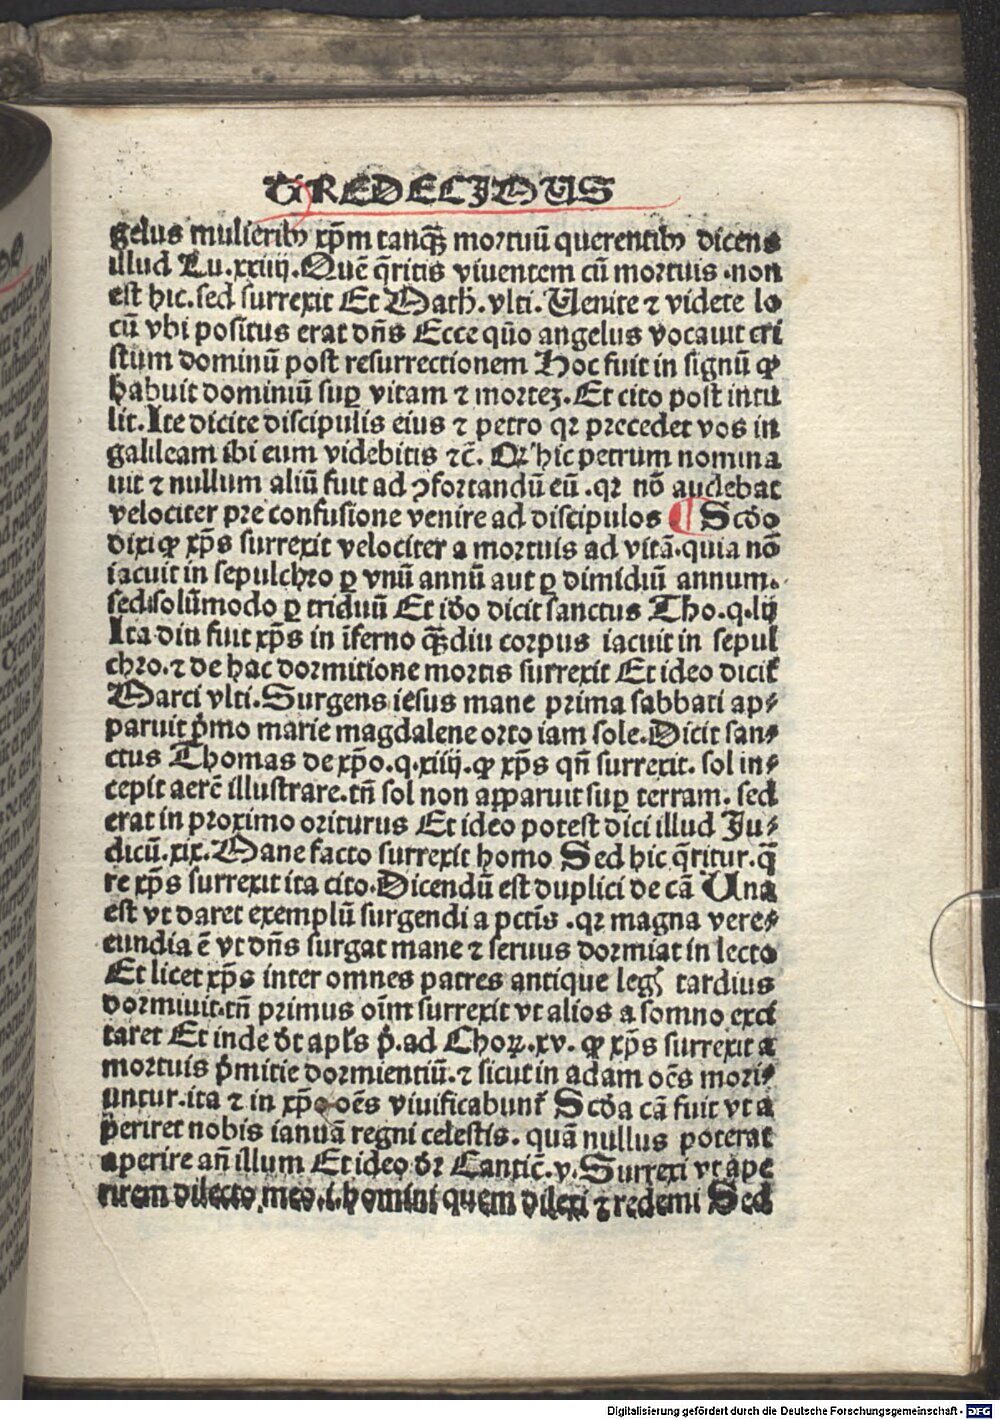 TREDECIMUS
gelus mulierib⁹ xp̄m tanq̄ȝ mortuū querentib⁹ dicens
illud Lu.xxiiij.Quē q̄ritis viventem cū mortuis.non
est hic.sed surrexit Et Math.vlti.Venite ⁊ videte lo
cū vbi positus erat dn̄s Ecce quō angelus vocavit cri
stum dominū post resurrectionem Hoc fuit in signū ꝙ
habuit dominiū suꝑ vitam ⁊ morteȝ.Et cito post intu
lit.Ite dicite discipulis eius ⁊ petro qꝛ precedet vos in
galileam ibi eum videbitis ⁊c̄. Qꝛ hic petrum nomina
uit ⁊ nullum aliū fuit ad ꝯfortandū eū.qꝛ nō audebat
velociter pre confusione venire ad discipulos ¶ Scd̄o
dixi ꝙ xp̄s surrexit velociter a mortuis ad vitā.quia nō
iacuit in sepulchro ꝑ vnū annū aut ꝑ dimidiū annum.
sed solūmodo ꝑ triduū Et id̄o dicit sanctus Tho.q.lij
Ita diu fuit xp̄s in īferno q̄ȝdiu corpus iacuit in sepul
chro.⁊ de hac dormitione mortis surrexit Et ideo dicit̄
Marci vlti.Surgens iesus mane prima sabbati ap⸗
paruit p̄mo marie magdalene orto iam sole.Dicit san⸗
ctus Thomas de xp̄o.q.xiiij.ꝙ xp̄s qn̄ surrexit. sol in⸗
cepit aerē illustrare.tn̄ sol non apparuit suꝑ terram. sed
erat in proximo oriturus Et ideo potest dici illud Ju⸗
dicū.xix.Mane facto surrexit homo Sed hic q̄ritur.q̄
re xp̄s surrexit ita cito.Dicendū est duplici de cā Una
est vt daret exemplū surgendi a pctīs .qꝛ magna vere⸗
cundia ē vt dn̄s surgat mane ⁊ seruus dormiat in lecto
Et licet xp̄s inter omnes patres antique leḡ tardius
dormiuit.tn̄ primus oīm surrexit vt alios a somno exci
taret Et inde d̄t apl̄s p̄.ad Choꝝ.xv. ꝙ xp̄s surrexit a
mortuis p̄mitie dormientiū.⁊ sicut in adam oēs mori⸗
untur.ita ⁊ in xp̄o oēs viuificabunt̄ Scd̄a cā fuit vt a
periret nobis ianuā regni celestis. quā nullus poterat
aperire an̄ illum Et ideo d̄ꝛ Cantic̄.v.Surrexi vt ape
rirem dilecto meo.i.homini quem dilexi ⁊ redemi Sed
Digitalisierung gefördert durch die Deutsche Forschungsgemeinschaft - DFG